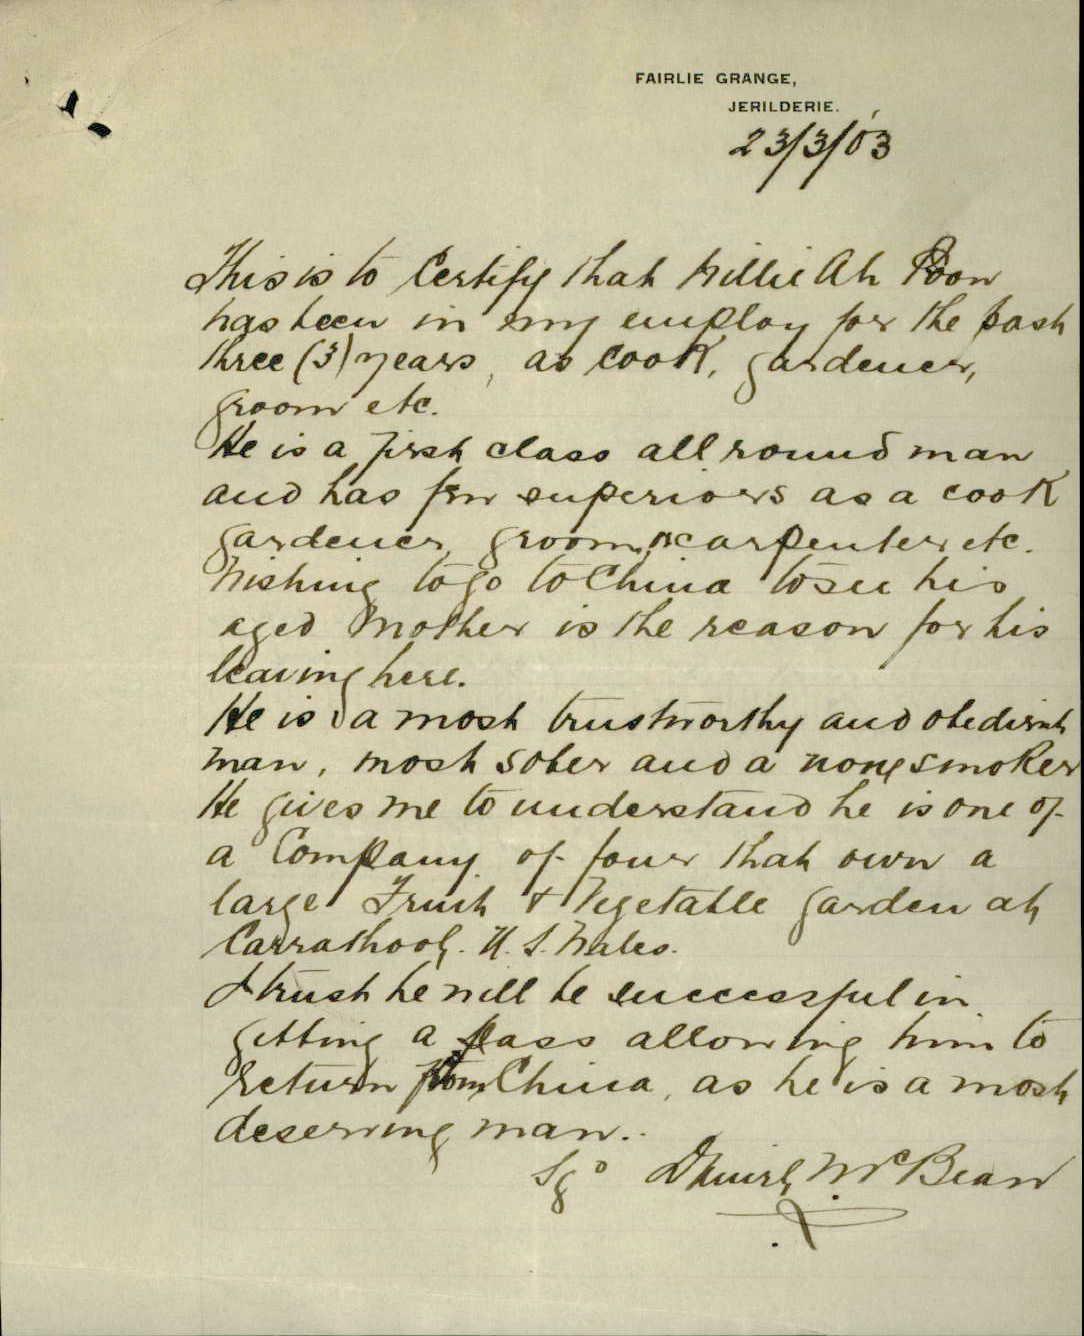 FAIRLIE GRANGE,
JERILDERIE.
23/3/03
This is to Certify that Willie Ah Poon
has been in my employ for the past
three (3) years, as cook, gardener,
groom etc.
He is a first class all round man
and has few superiors as a cook
gardener, groom, carpenter etc.
Wishing to go to China to see his
aged Mother is the reason for his
leaving here.
He is a most trustworthy and obedient
man, most sober and a non smoker
He gives me to understand he is one of
a Company of four that own a
large Fruit & Vegetable garden at
Carrathool, N. S. Wales.
I trust he will be successful in
getting a pass allowing him to
return from China, as he is a most
deserving man.
Sgd McBean